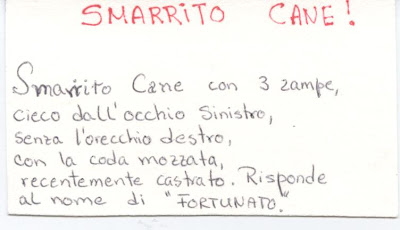 SMARRITO CANE!
Smarrito Cane con 3 zampe,
cieco dall'occhio sinistro,
senza l'orecchio destro,
con la coda mozzata,
recentemente castrato. Risponde
al nome di "FORTUNATO."